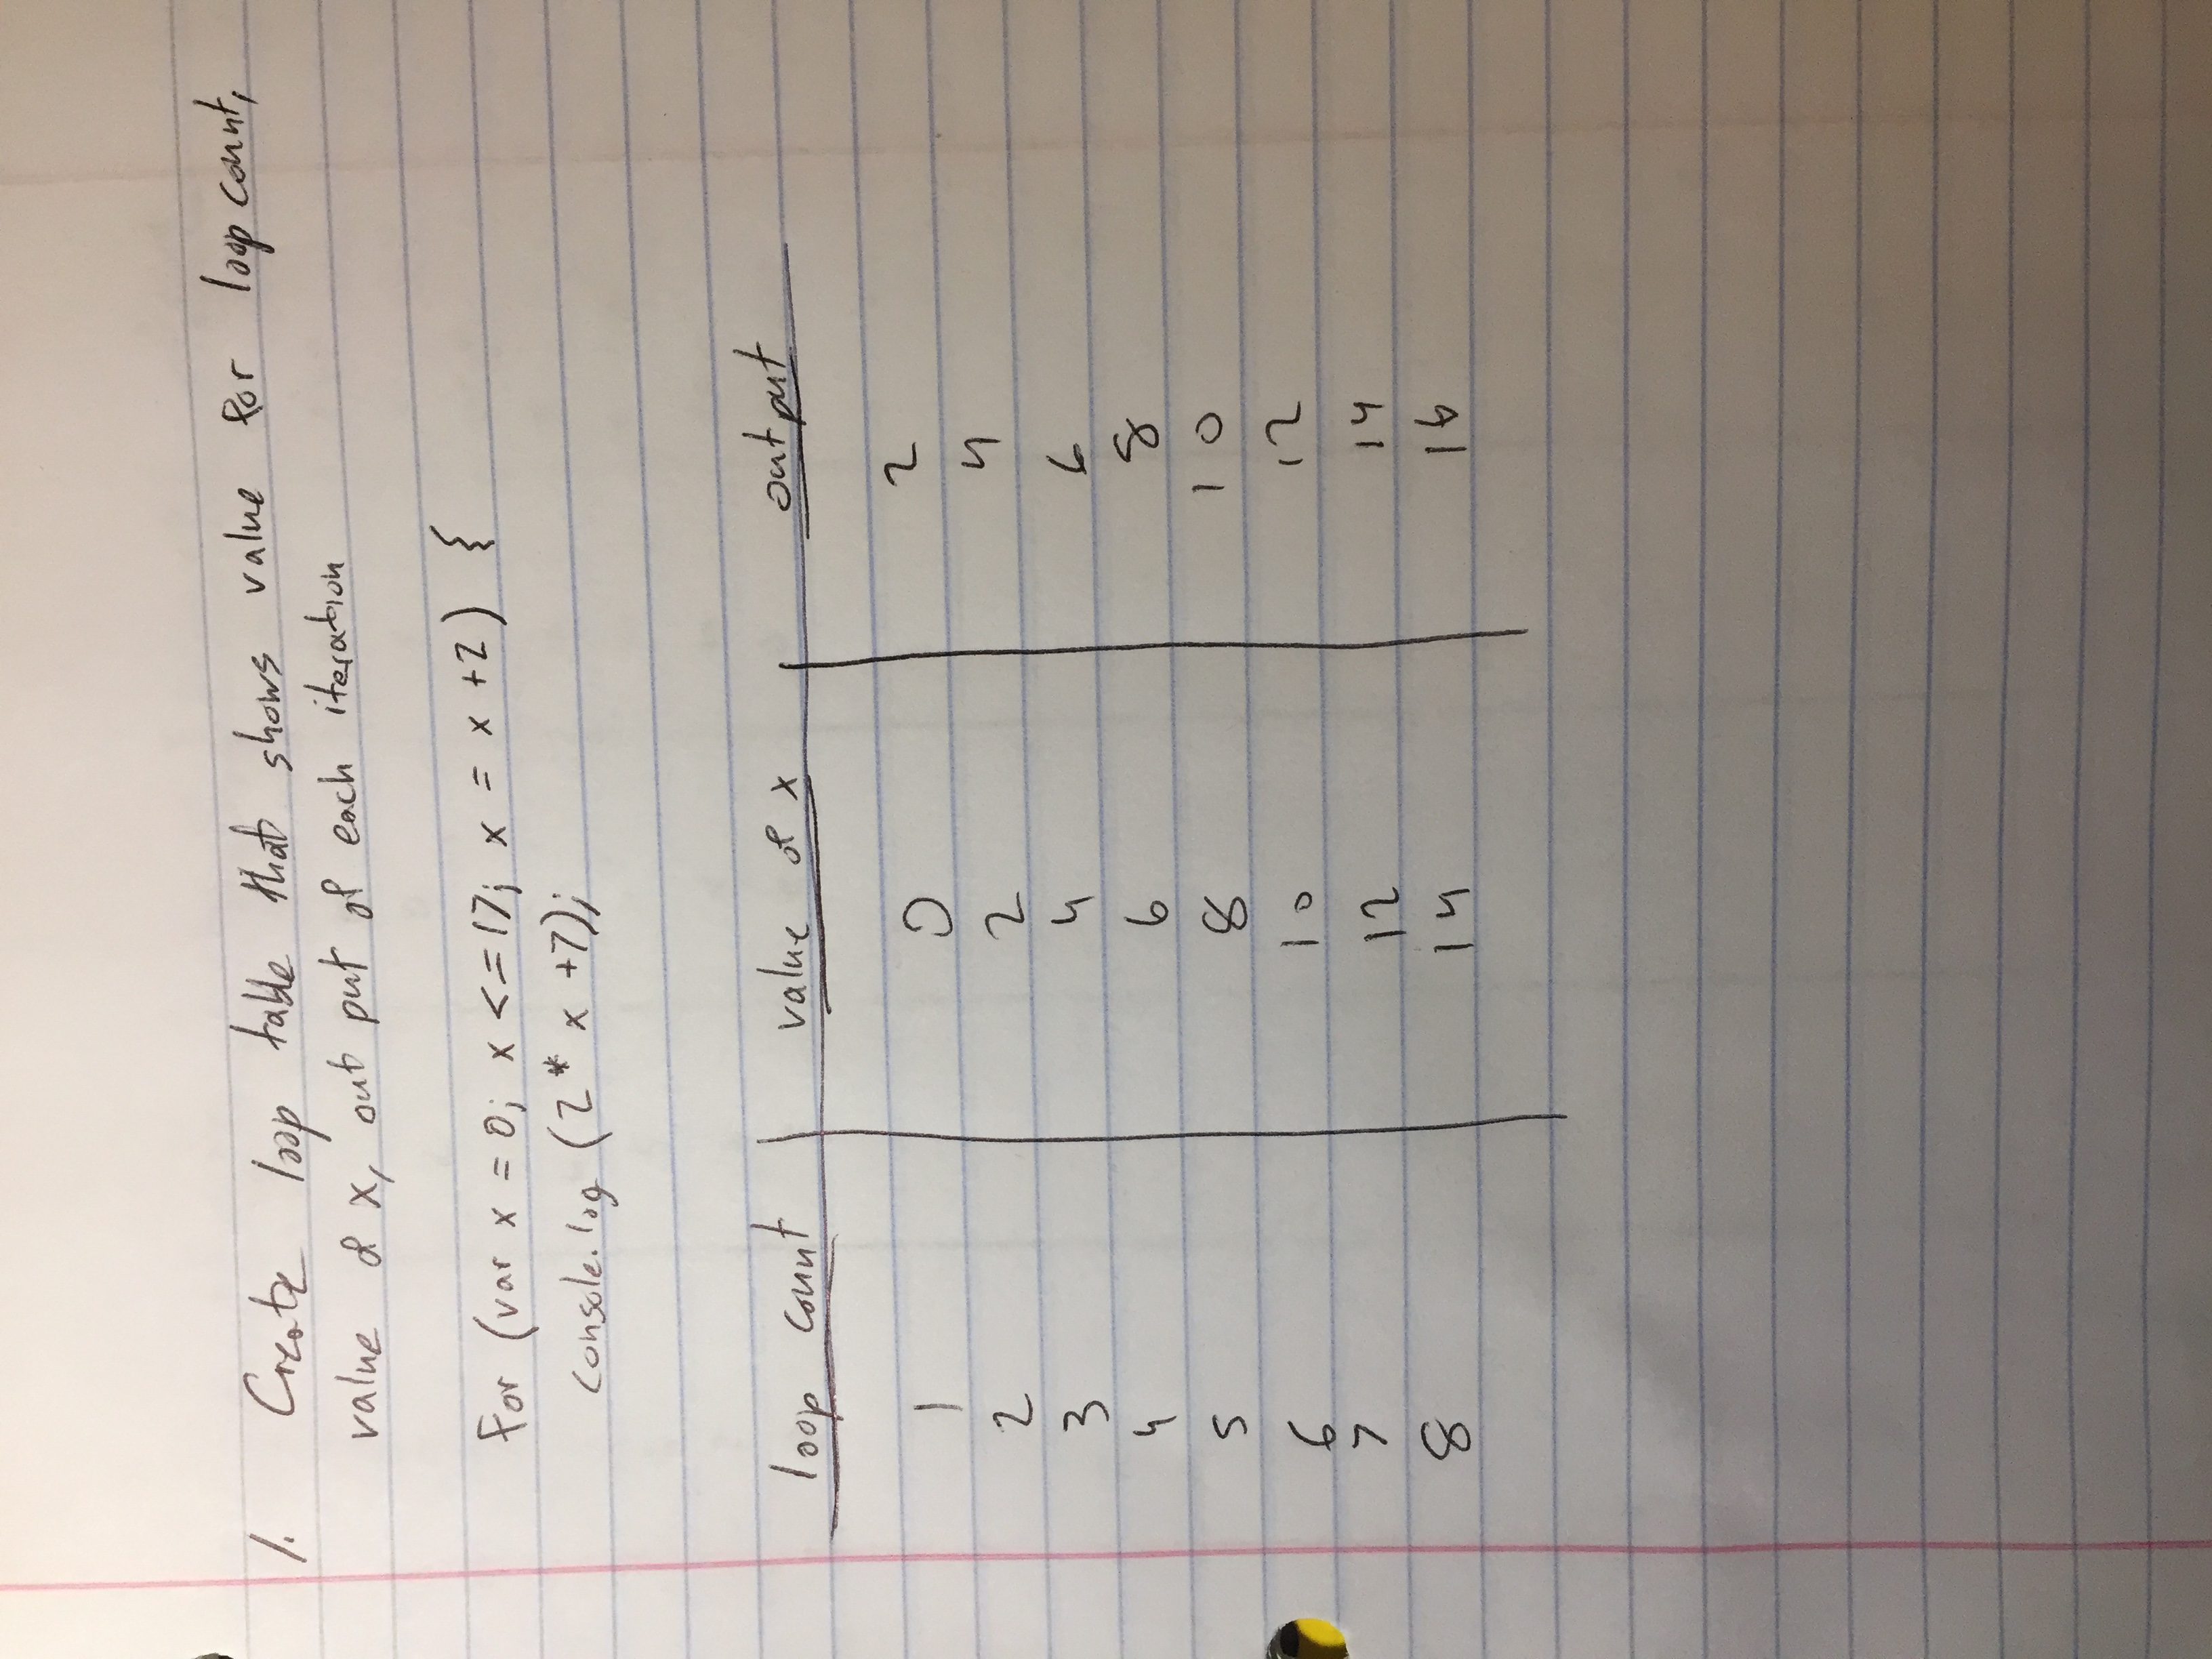 1. Create loop table that shows value for loop count,
value of x, out put of each iteration
for (var x = 0; x <= 17; x = x +2) {
console.log (2 * x +7);
loop count value of x output
1 0 2
2 2 4
3 4 6
4 6 8
5 8 10
6 10 12
7 12 14
8 14 16